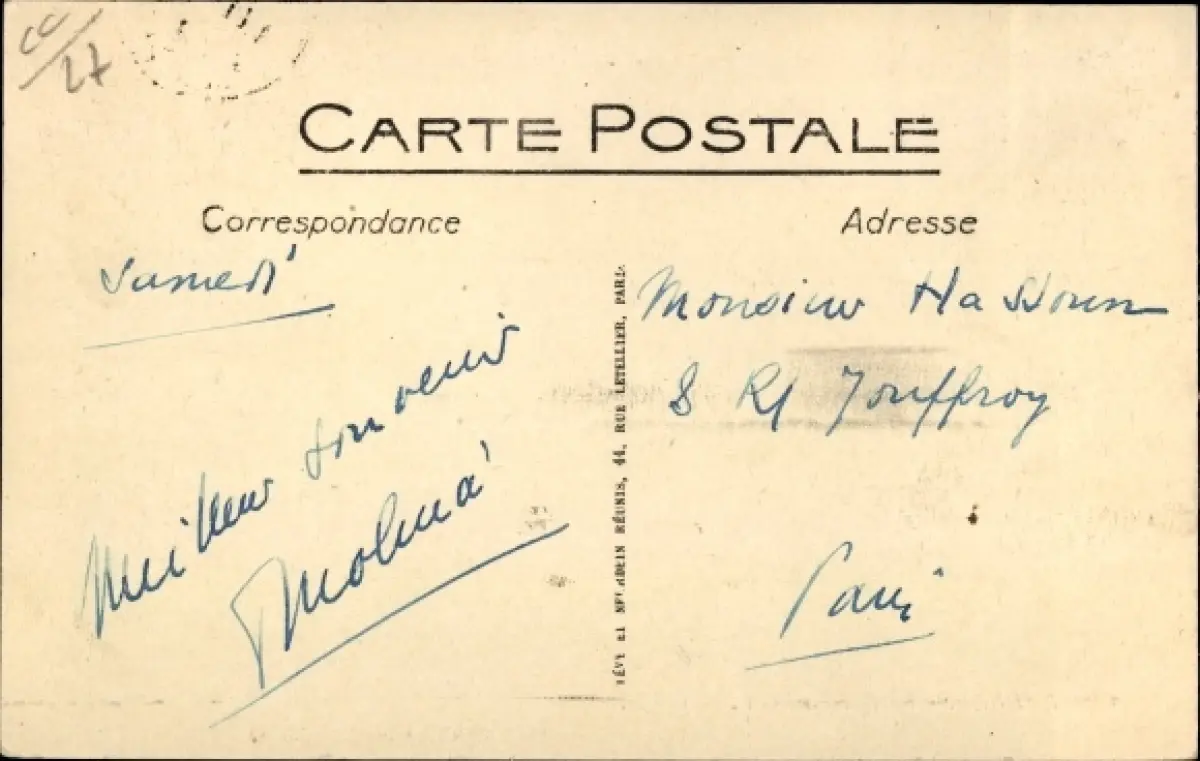 CC/27
CARTE POSTALE
Correspondance
Adresse
Samedi
Meilleur souvenir
Monsieur Hassoun
8 R Jouffroy
Paris
LÉVY ET NEURDEIN RÉUNIS, 44, RUE LETELLIER, PARIS